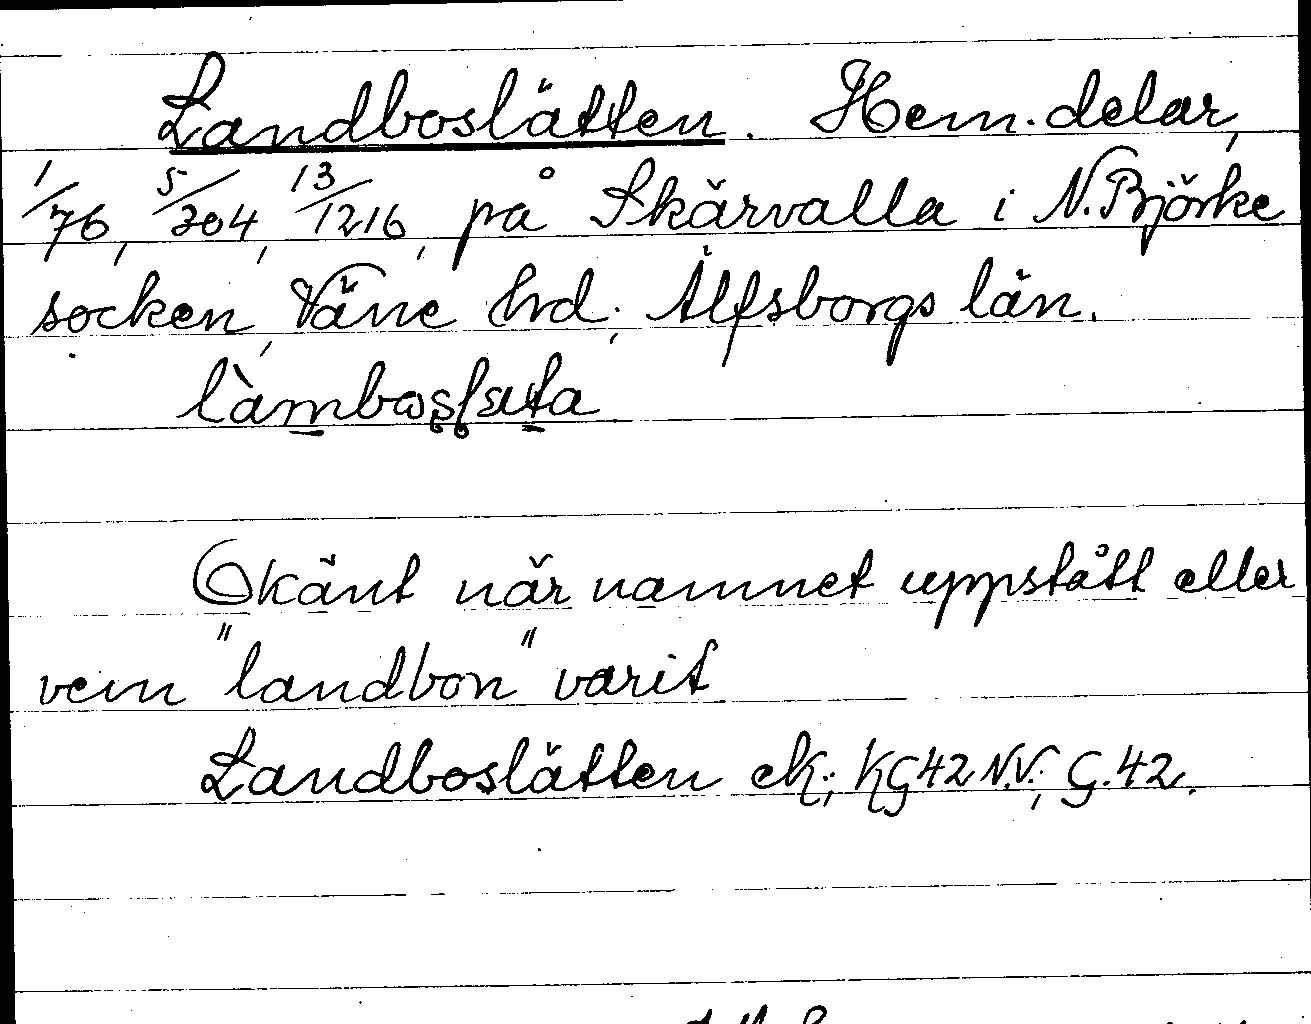 Landboslätten. Hem. delar,
1/76, 5/304, 13/1216, på Skärvalla i N. Björke
socken, Väne hrd; Älfsborgs län.
Okänt när namnet uppstått eller
vem "landbon" varit
Landboslätten ek.; KG42 N.V.; G.42.